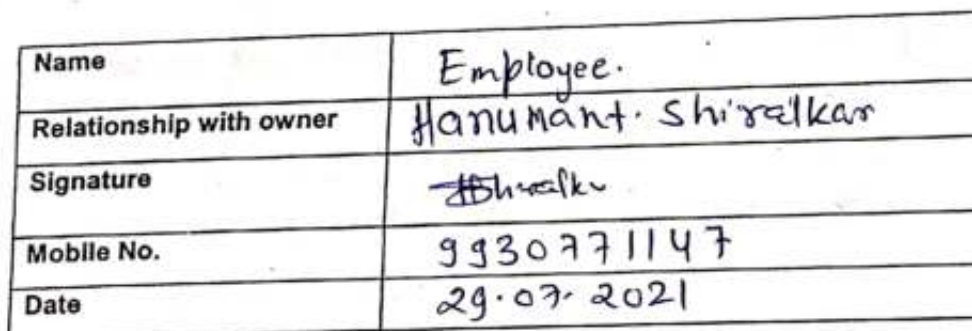 Name Employee.
Relationship with owner Hanumant. Shiralkar
Signature HShiralkar
Mobile No. 9930771147
Date 29.07.2021